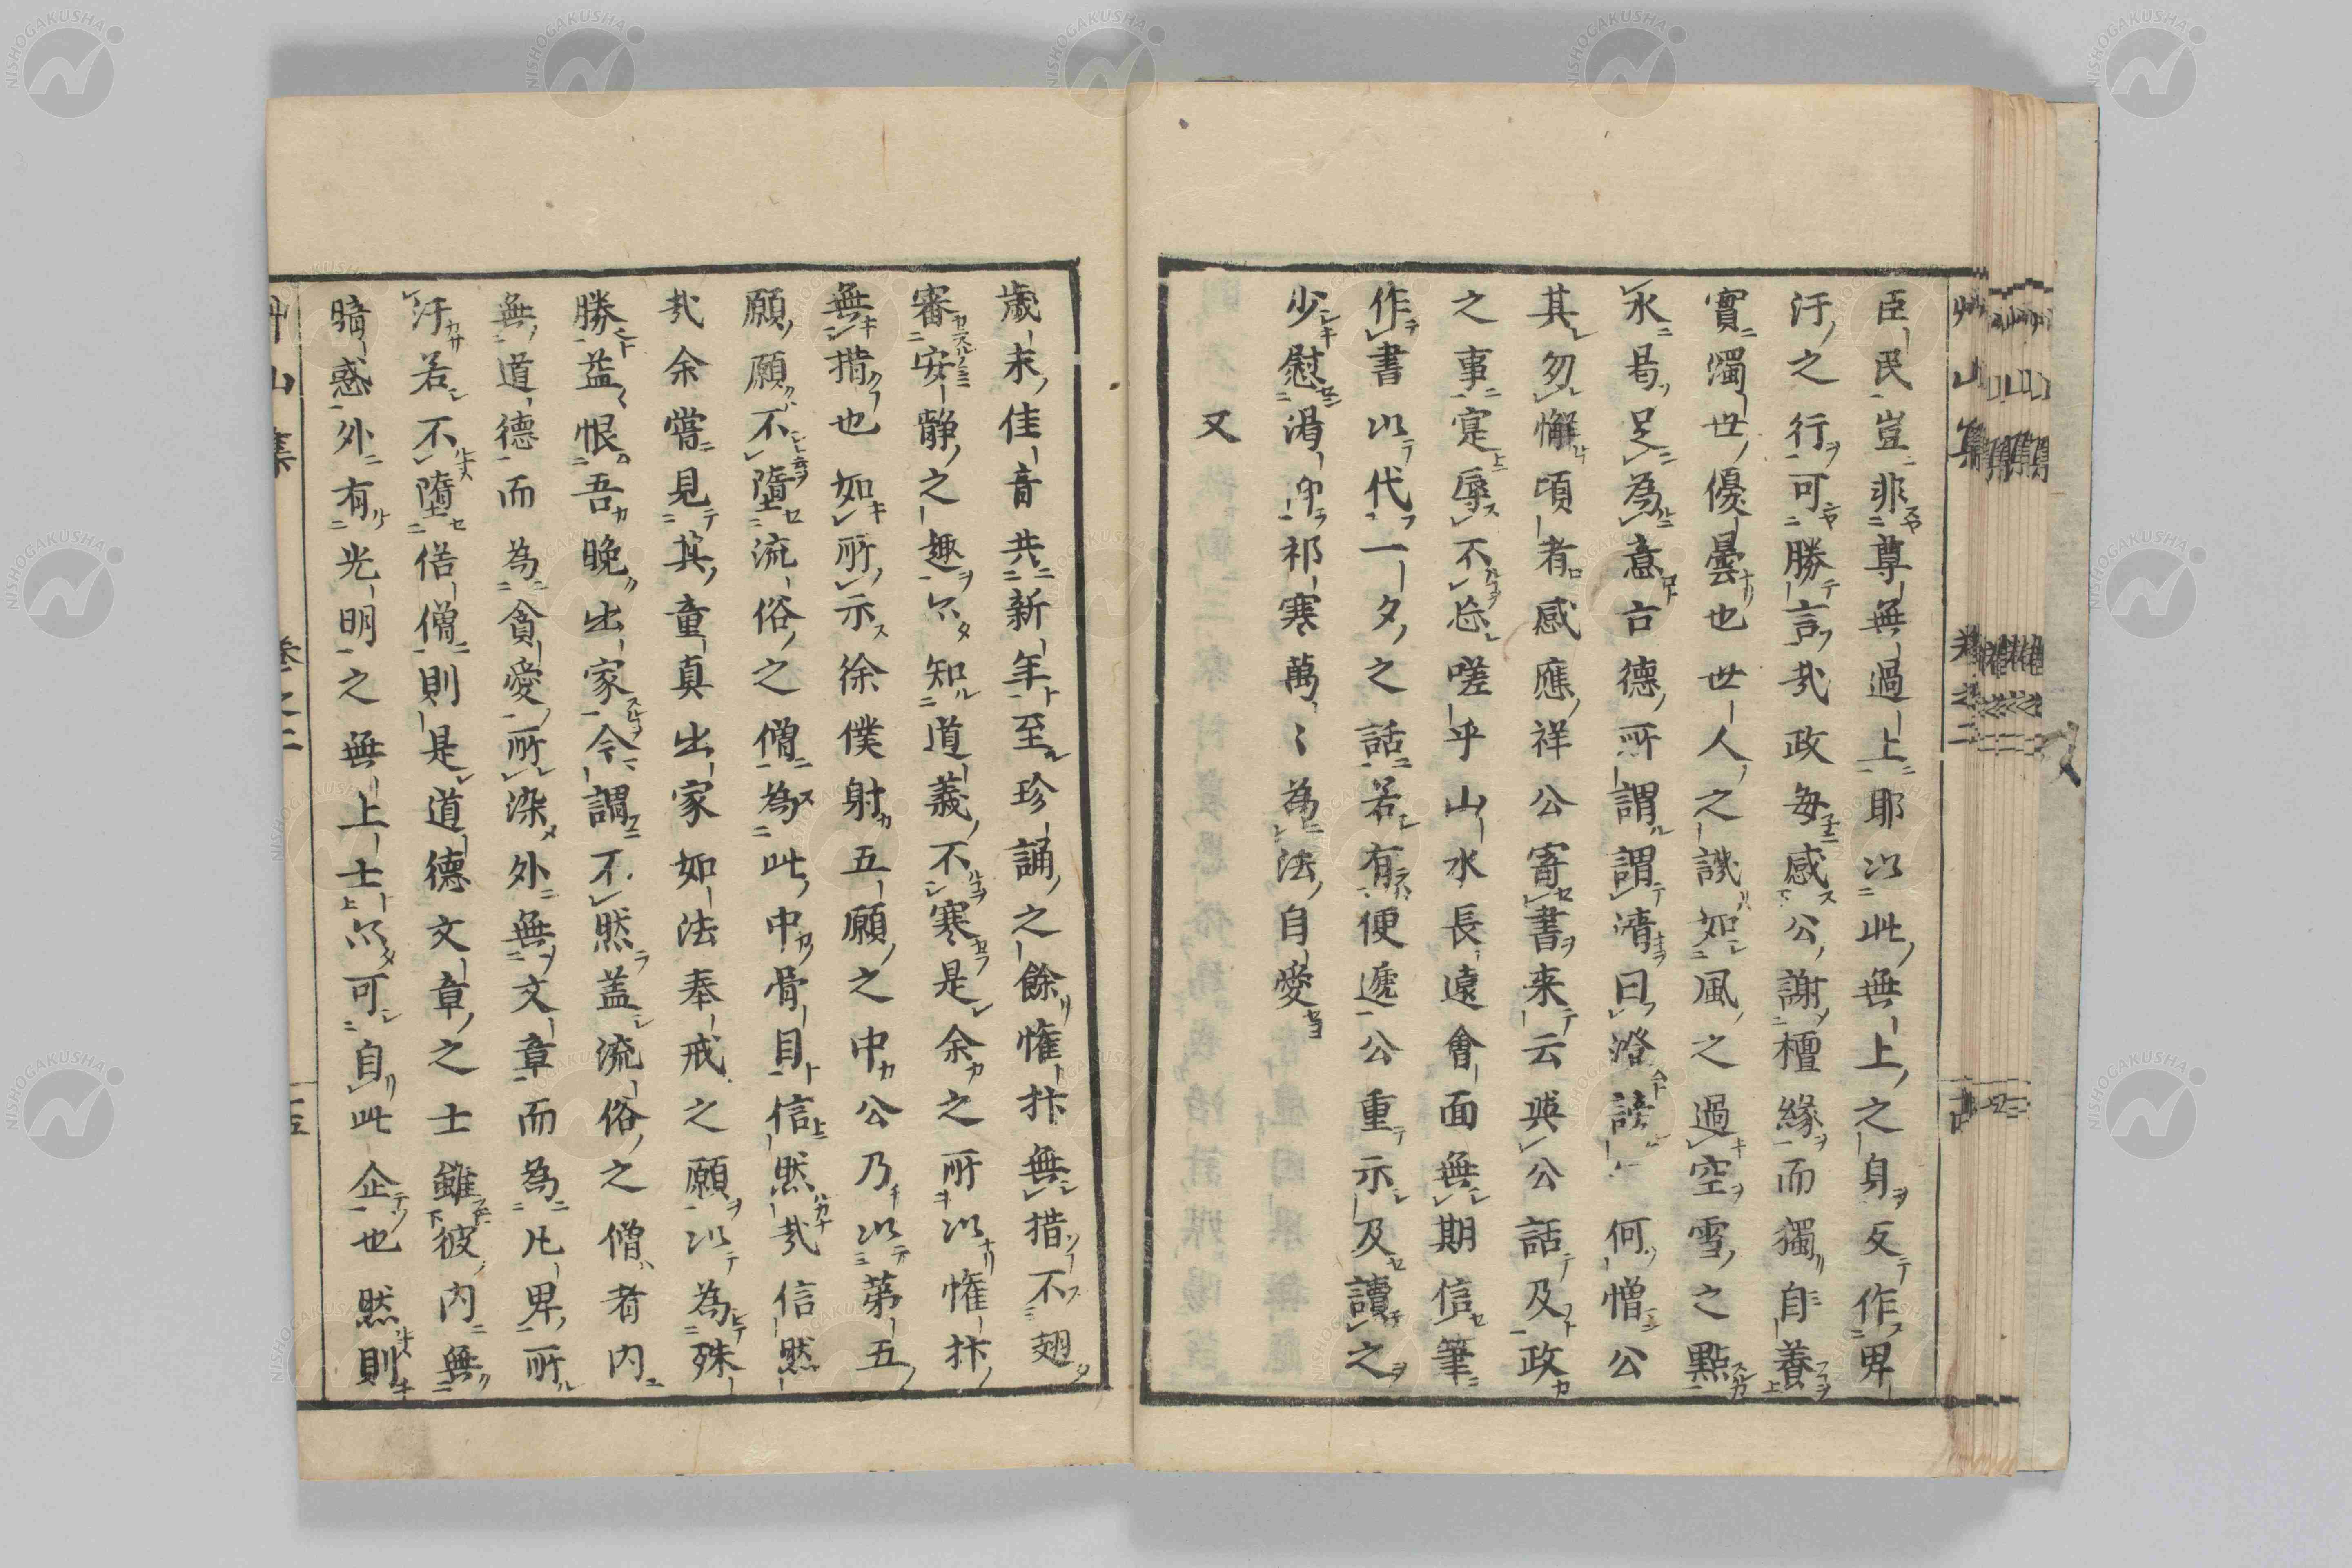 臣民豈非尊無過上耶以此無上之身反作卑
汙之行可勝言哉政每感公謝檀緣而獨自養
實濁世優曇也世人之譏如風之過空雪之點
水曷足為意古德所謂謂清曰澄謗何憎公
其勿懈頃者感應祥公寄書來云與公話及政
之事寔辱不忘嗟乎山水長遠會面無期信筆
作書以代一夕之話若有便遞公重示及讀之
少慰渴仰祁寒萬〻為法自愛
又
歲末佳音共新年至珍誦之餘慛抃無措不翅
審安靜之趣亦知道義不寒是余之所以慛抃
無措也如所示徐僕射五願之中公乃以第五
願願不墮流俗之僧為此中骨目信然哉信然
哉余嘗見其童真出家如法奉戒之願以為殊
勝益恨吾晚出家今謂不然蓋流俗之僧者內
無道德而為貪愛所染外無文章而為凡卑所
汙若不墮俗僧則是道德文章之士雖彼內無
暗惑外有光明之無上士以可自此企也然則
艸山集
卷之二